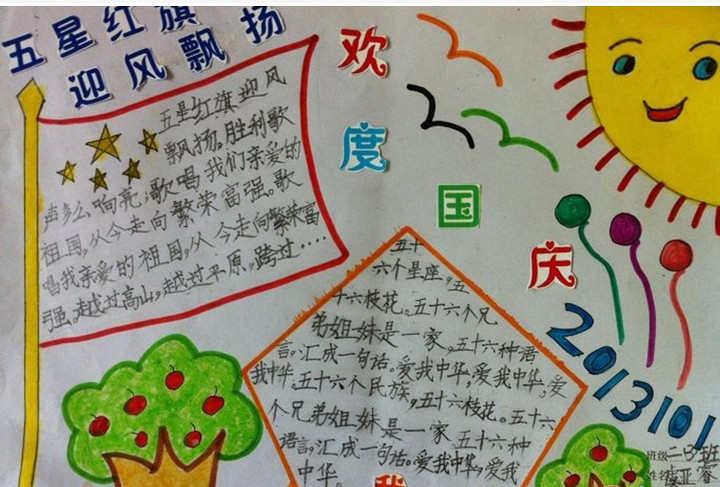 五星红旗
迎风飘扬
五星红旗迎风
飘扬。胜利歌
声多么响亮;歌唱我们亲爱的
祖国,从今走向繁荣富强。歌
唱我亲爱的祖国,从今走向繁荣富
强。越过高山,越过平原,跨过····
欢
度
国
庆
五十
六个星座,五
十六枝花。五十六个兄
弟姐妹是一家,五十六种语
言,汇成一句话。爱我中华,爱我中华,爱
我中华,五十六个民族,五十六枝花。五十六
个兄弟姐妹是一家五十六种
语言,汇成一句话。爱我中华,爱我
中华。
我
2013101
班级二B班
姓名